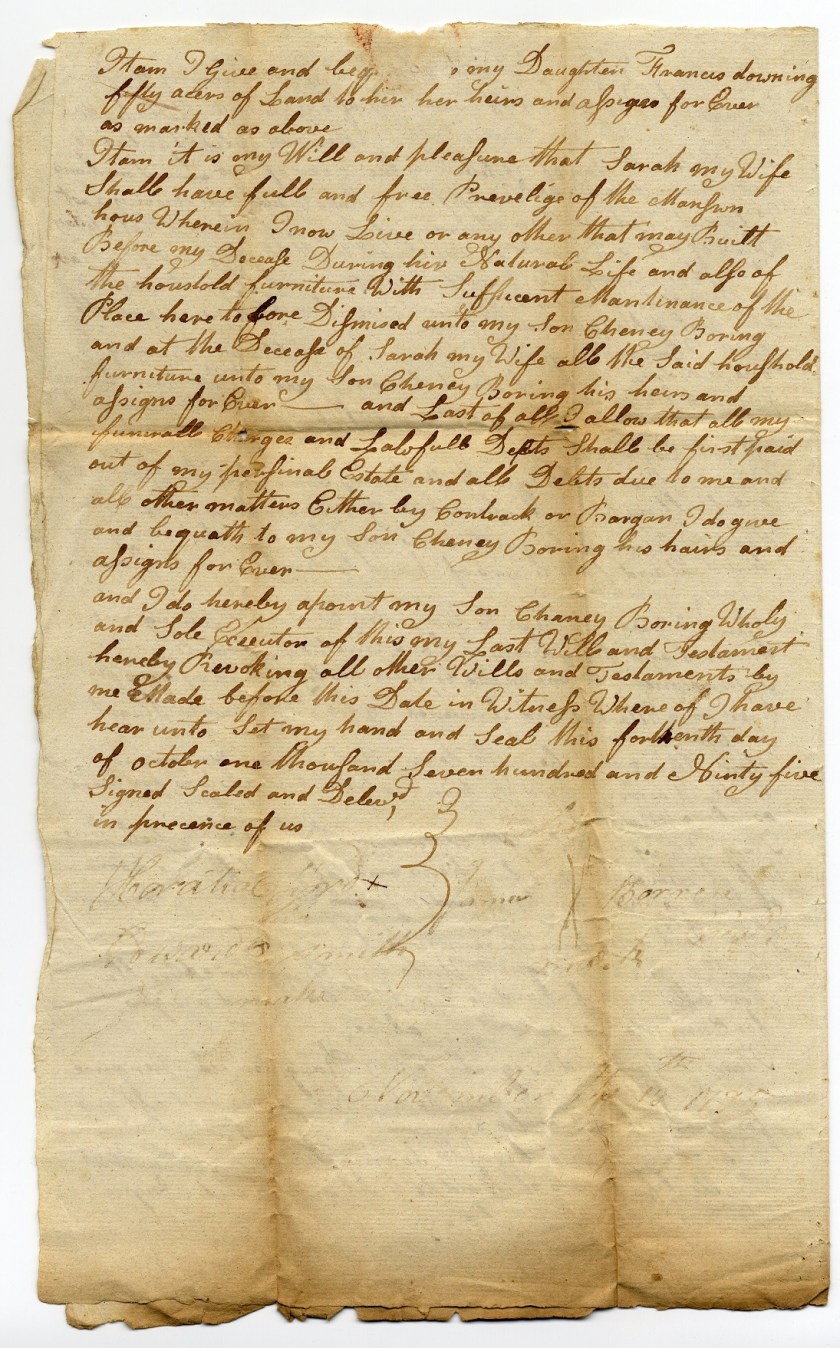 Itam I Give and beq my Daughter Francis downing
fifty acers of Land to hir her heirs and assigns for Ever
as marked as above
Itam it is my Will and pleasure that Sarah my Wife
Shall have full and free Prevelige of the Manswn
hous Wherein I now Live or any other that may Built
Before my Decease During hir Natural Life and also of
the houshold furniture With Suffucent Mantinance of the
Place here to fore Dismised unto my Son Cheney Boring
and at the Decease of Sarah my Wife all the Said houshold
furniture unto my Son Cheney Boring his heirs and
assigns for Ever — and Last of all I allow that all my
funerall Charges and Lawfull Depts Shall be first paid
out of my persinal Estate and all Debts due to me and
all other matters Either by Contrack or Bargan I do give
and bequath to my Son Cheney Boring his hairs and
assigns for Ever —
and I do hereby apoint my Son Chaney Boring Wholy
and Sole Executor of this my Last Will and Testament
hereby Revoking all other Wills and Testaments by
me Made before this Date in Witness Where of I have
hear unto Set my hand and Seal this forthenth day
of october one thousand Seven hundred and Ninty five
Signed Sealed and Delewd
in precence of us
X
Smith
mark
November the 18th